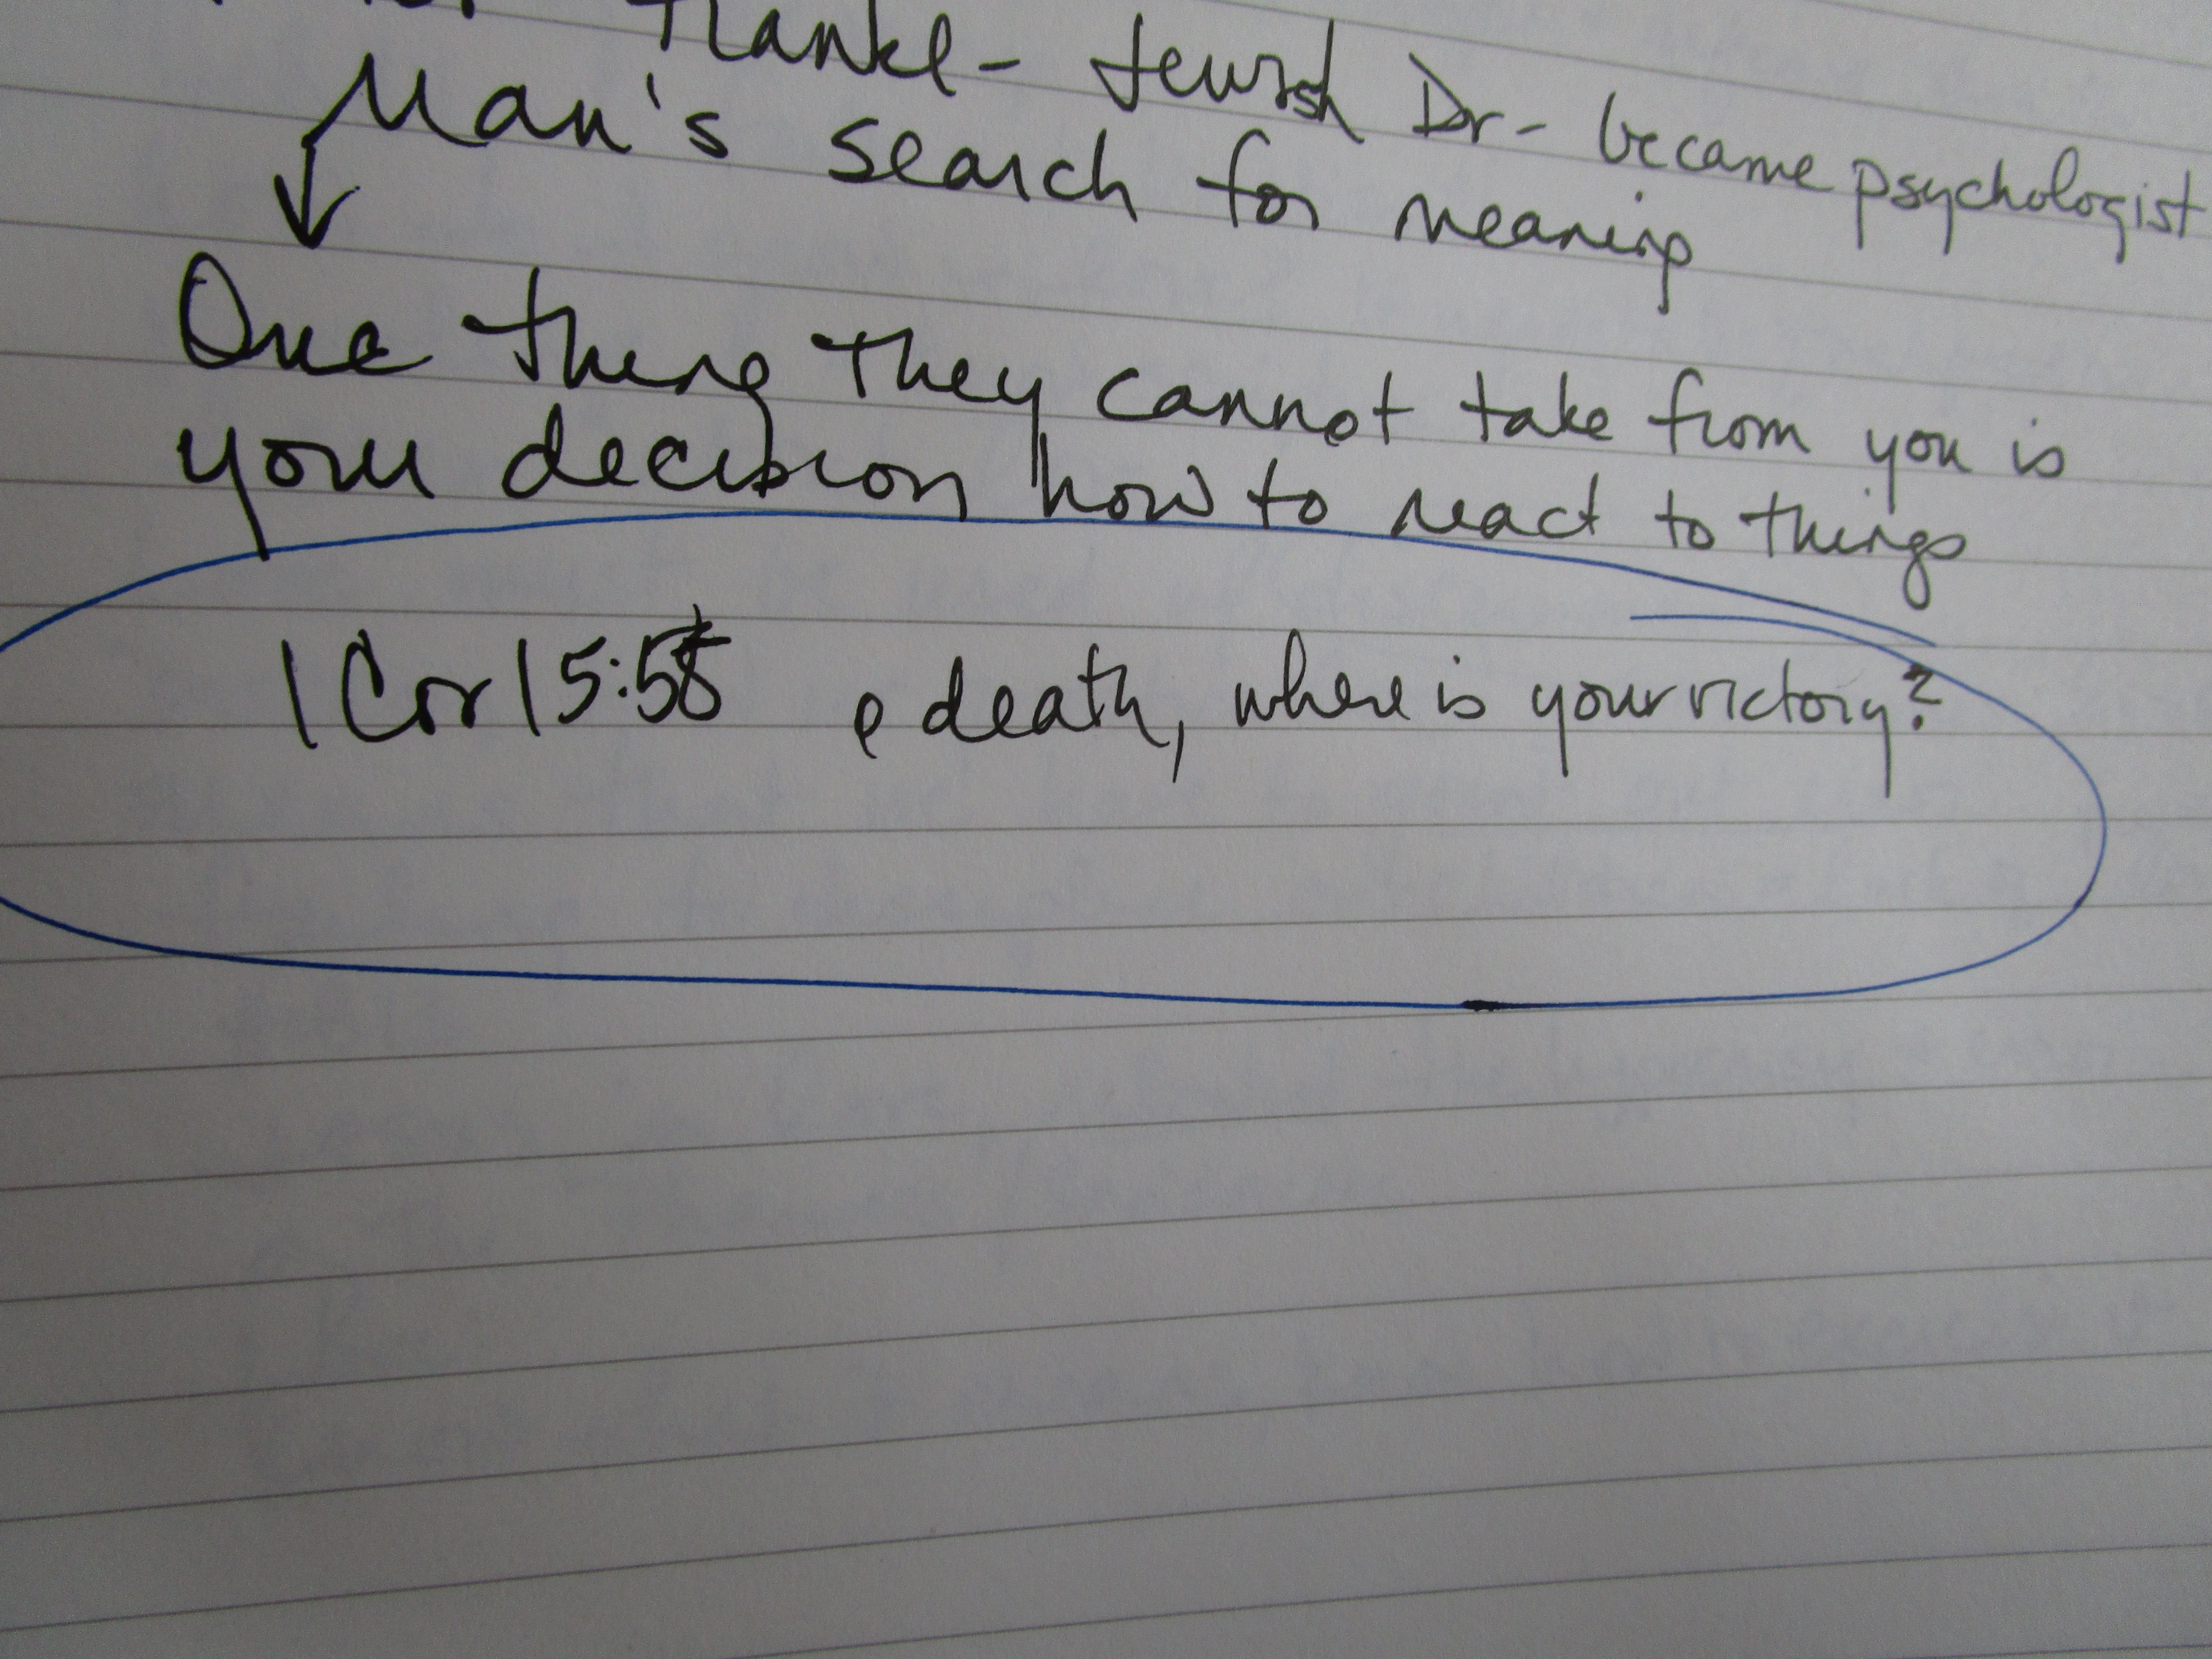 Frankl - Jewish Dr - became psychologist
Man's search for meaning
One thing they cannot take from you is
your decision how to react to things
1 Cor 15:55 O death, where is your victory?